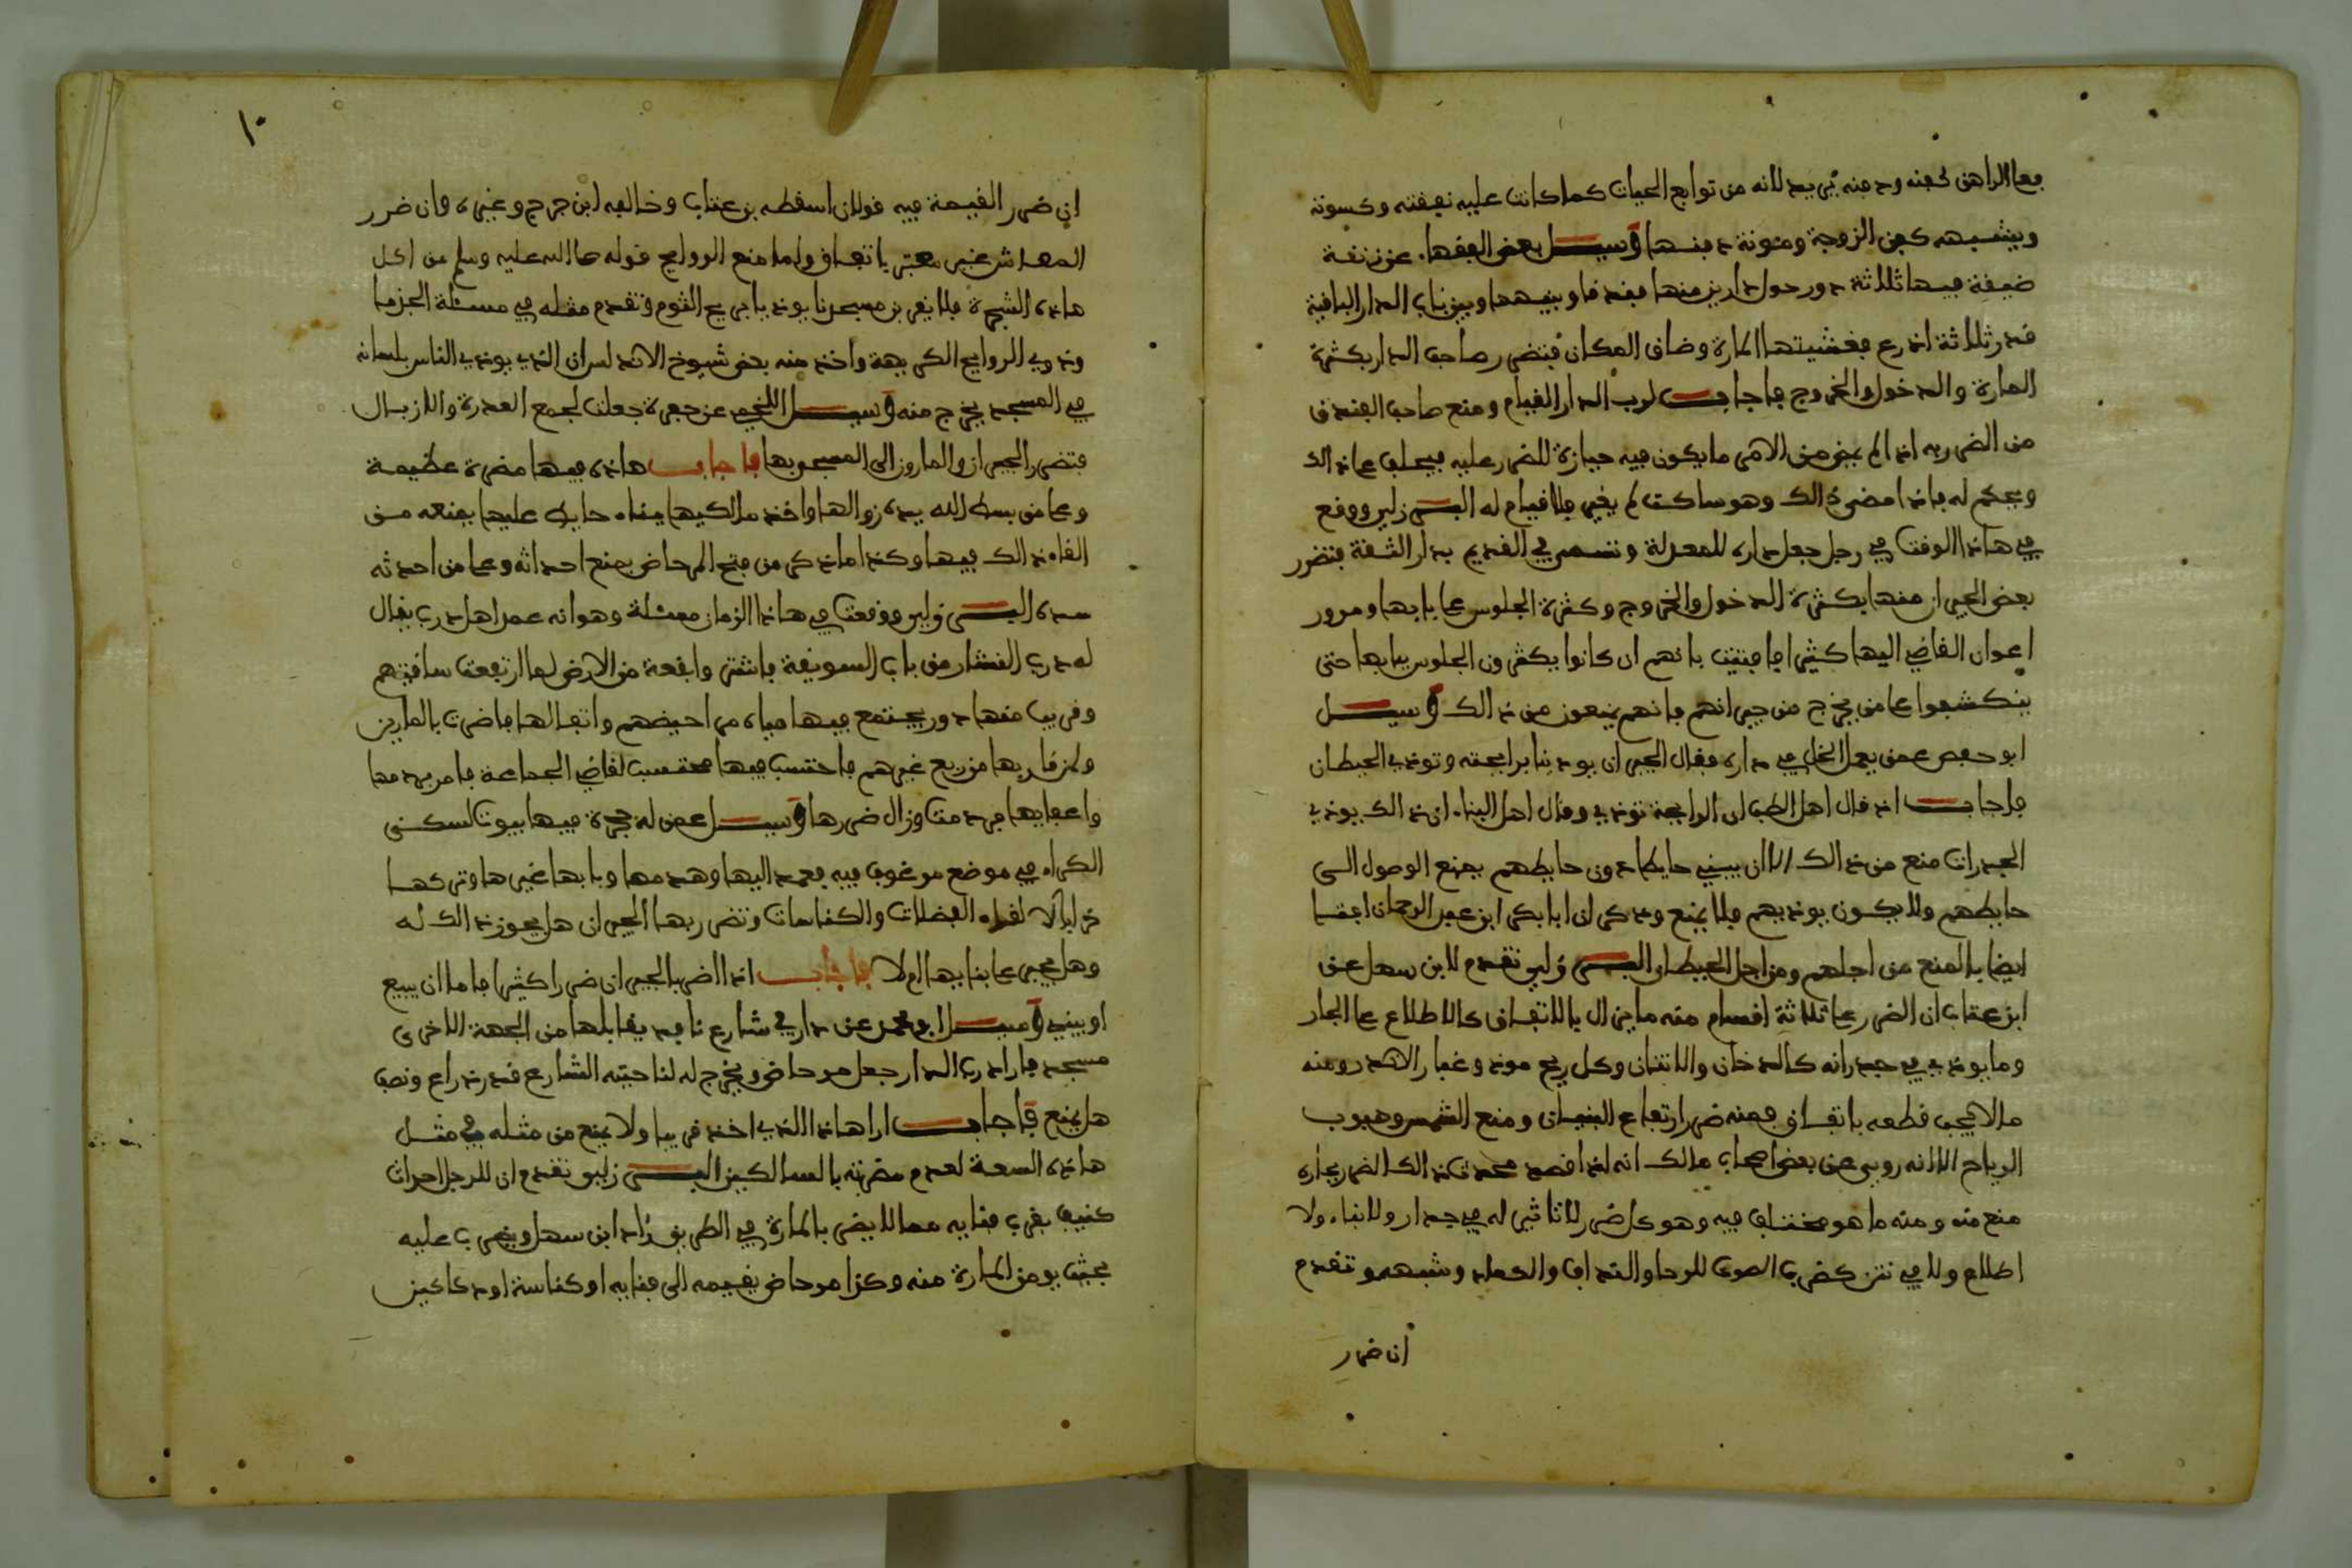 فعلى الراهن كفنه ودفنه يريد لانه من توابع الحياة كما كانت عليه نفقته وكسوته
ويشبهه كفن الزوجة ومئونة دفنها وسيل بعض الفقهاء عن زنقة
ضيقة فيها ثلاثة دور حول دارين منها فندقا وبينهما وبين باب الدار الباقية
قدر ثلاثة اذرع فغشيتها المارة وضاق المكان فتضرر صاحب الدار بكثرة
المارة والدخول والخروج فاجاب لرب الدار القيام ومنع صاحب الفندق
من الضرر به اذا لم يمض من الامر ما يكون فيه حيازة للضرر عليه فيحلف على ذالك
ويحكم له فاذا مضى ذالك وهو ساكت لم يغير فلا قيام له البرزلي ووقع
في هاذا الوقت في رجل جعل داره للمعدلة وتسمى في القديم بدار الثقة فتضرر
بعض الجيران منها بكثرة الدخول والخروج وكثرة الجلوس على بابها ومرور
اعوان القاضي اليها كثيرا فافتيت بانهم ان كانوا يكثرون الجلوس ببابها حتى
ينكشفوا على من يخرج من جيرانهم فانهم يمنعون من ذالك وسيل
ابو حفص عمن يعمل الخل في داره فقال الجيران يوذينا برايحته وتوذي الحيطان
فاجاب اذا قال اهل الطب ان الرايحة توذي وقال اهل البناء ان ذالك يوذي
الجدرات منع من ذالك الا ان يبني حايطا دون حايطهم يمنع الوصول الى
حايطهم ولا يكون يوذيهم فلا يمنع وذكر ان ابا بكر ابن عبد الرحمان افتى
ايضا بالمنع من اجلهم ومن اجل الحيطان البرزلي تقدم لابن سهل عن
ابن عتاب ان الضرر على ثلاثة اقسام منه ما يزال بالاتفاق كالاطلاع على الجار
وما يوذي في جدرانه كالدخان والانتنان وكل ريح موذ وغبار الاندر ومنه
ما لا يجب قطعه باتفاق فمنه ضرر ارتفاع البنيان ومنع الشمس وهبوب
الرياح الا انه روي عن بعض اصحاب مالك انه اذا قصد محدث ذالك الضرر بجاره
منع منه ومنه ما هو مختلف فيه وهو كل ضرر لا تاثير له في جدار ولا بناء ولا
اطلاع ولا في نتن كضرب الصوت للرحا والنداف والكماد وشبهه وتقدم
ان ضرر
١٠
ان ضرر القيمة فيه قولان اسقطه بن عتاب وخالفه ابن جرج وغيره وان ضرر
المعاش غير معتبر باتفاق واما منع الروايح قوله صلى الله عليه وسلم من اكل
هاذه الشجرة فلا يقربن مسجدنا يوذينا بريح الثوم وتقدم مثله في مسئلة الجزما
وذوي الروايح الكريهة واخذ منه بعض شيوخ الاندلس ان الذي يوذي الناس بلسانه
في المسجد يخرج منه وسيل اللخمي عن حفرة جعلت لجمع العذرة والازبال
فتضرر الجيران والمارون الى المسجد بها فاجاب هاذه فيها مضرة عظيمة
وعلى من بسط الله يده زوالها واخذ مالكيها ببناء حايط عليها يمنعه من
القاء ذالك فيها وكذا ما ذكر من فتح المرحاض يمنع احداثه وعلى من احدثه
سده البرزلي ووقعت في هاذا الزمان مسئلة وهو انه عمد اهل درب يقال
له درب القشار من باب السويقة فاشترى وابقعة من الارض لما ارتفعت ساقيتهم
وقريب منها دور يجتمع فيها مياه مراحيضهم واتفالها فاضرت بالمارين
ولمن قاربها من ربع غيرهم فاحتسب فيها محتسب لقاضي الجماعة فامر بهدمها
واعفايها فهدمت وزال ضررها وسيل عمن له حجرة فيها بيوت لسكنى
الكراء في موضع مرغوب فيه فعمد اليها وهدمها وبابها غيرها وتركها
خرابا لالقاء الفضلات والكناسات وتضرر بها الجيران هل يجوز ذالك له
وهل يجبر على بنايها ام لا فاجاب اذا اضر بالجيران ضررا كثيرا فاما ان يبيع
او يبني وسيل ابو محمد عن دار في شارع نافذ يقابلها من الجهة الاخرى
مسجد فاراد رب الدار جعل مرحاض ويخرج له لناحيته الشارع قدر ذراع ونصف
هل يمنع فاجاب ارا هاذا الذي اخذ قريبا ولا يمنع من مثله في مثل
هاذه السعة لعدم مضرته بالسالكين البرزلي وتقدم ان للرجل احداث
كنيف بقرب فنايه مما لا يضر بالمارة في الطريق زاد ابن سهل ويضرب عليه
بحيث يومن المارة منه وكذا مرحاض يقيمه الى فنايه او كناسة او دكاكين